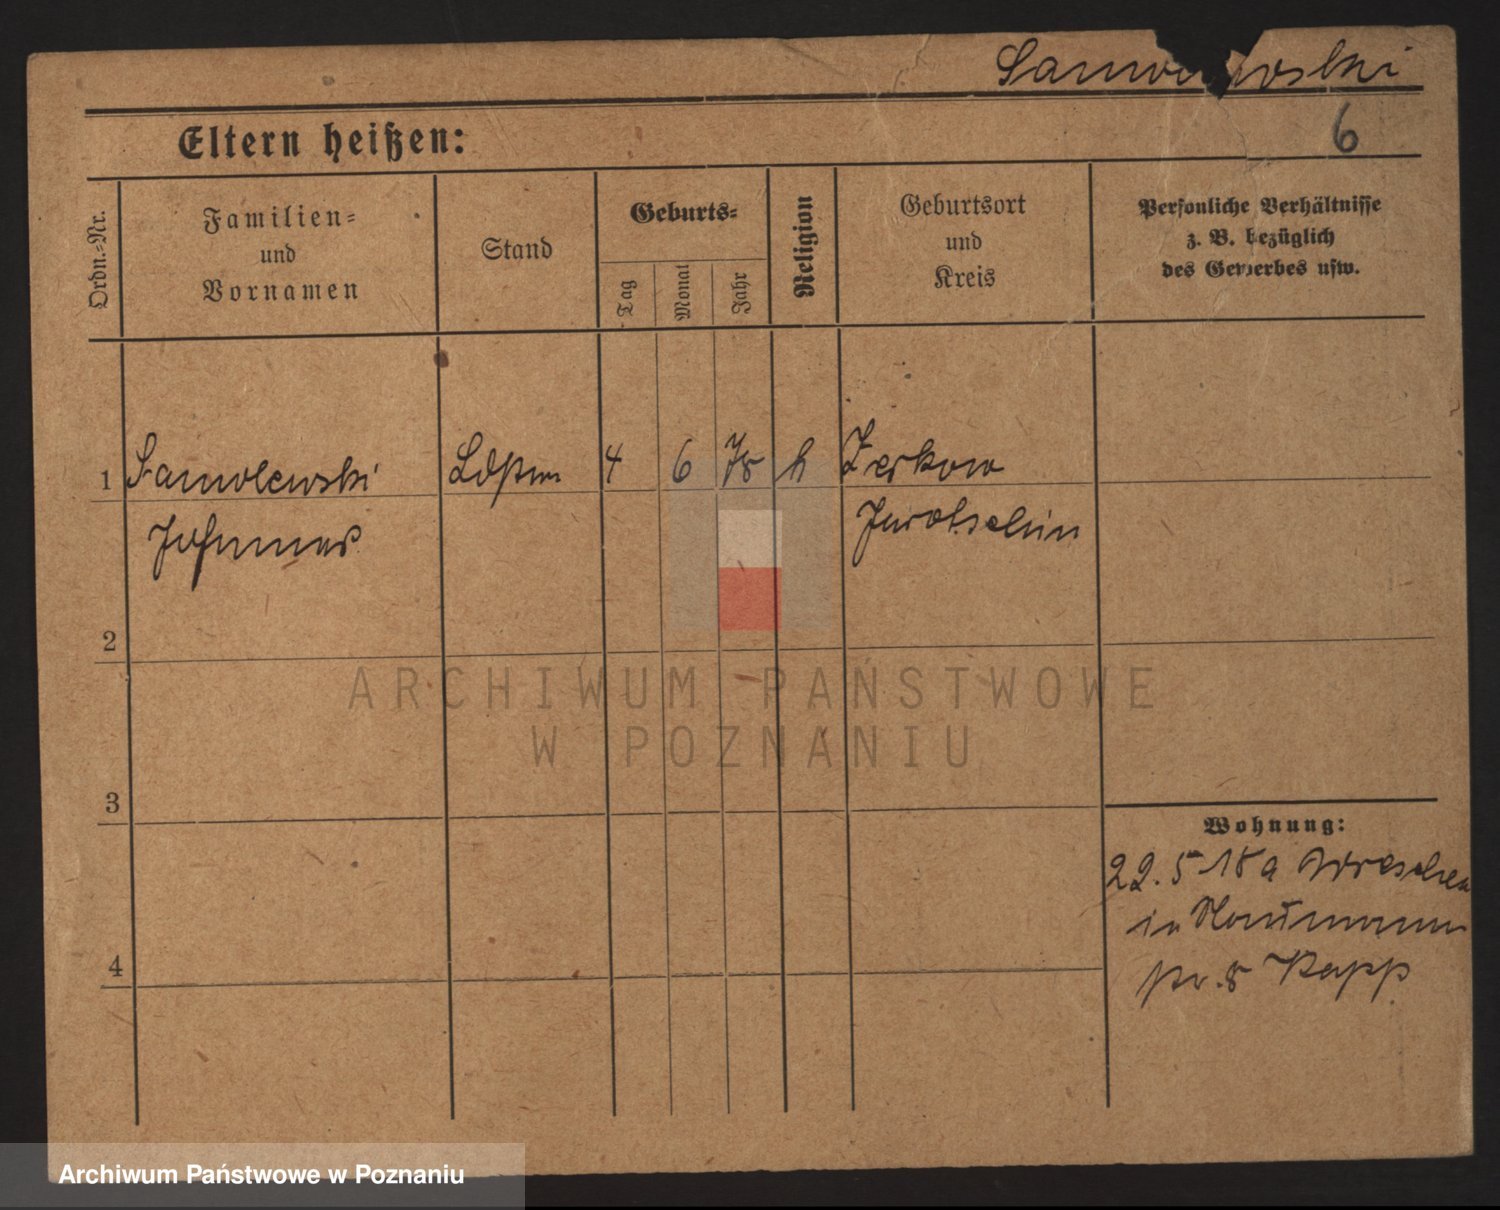 Samolewski
Eltern heißen:
6
Ordn.-Nr.
Familien-
und
Vornamen
Stand
Geburts-
Tag
Monat
Jahr
Religion
Geburtsort
und
Kreis
Persönliche Verhältnisse
z. B. bezüglich
des Gewerbes usw.
1 Samolewski 4 6 78 k Zerkow
Johannes Jarotschin
2
ARCHIWUM PAŃSTWOWE
W POZNANIU
3
Wohnung:
22. 5 18 a Wreschen
in
4
8 Rapp
Archiwum Państwowe w Poznaniu